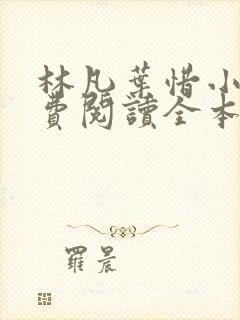 林凡葉惜小
費閱讀全本
羅晨